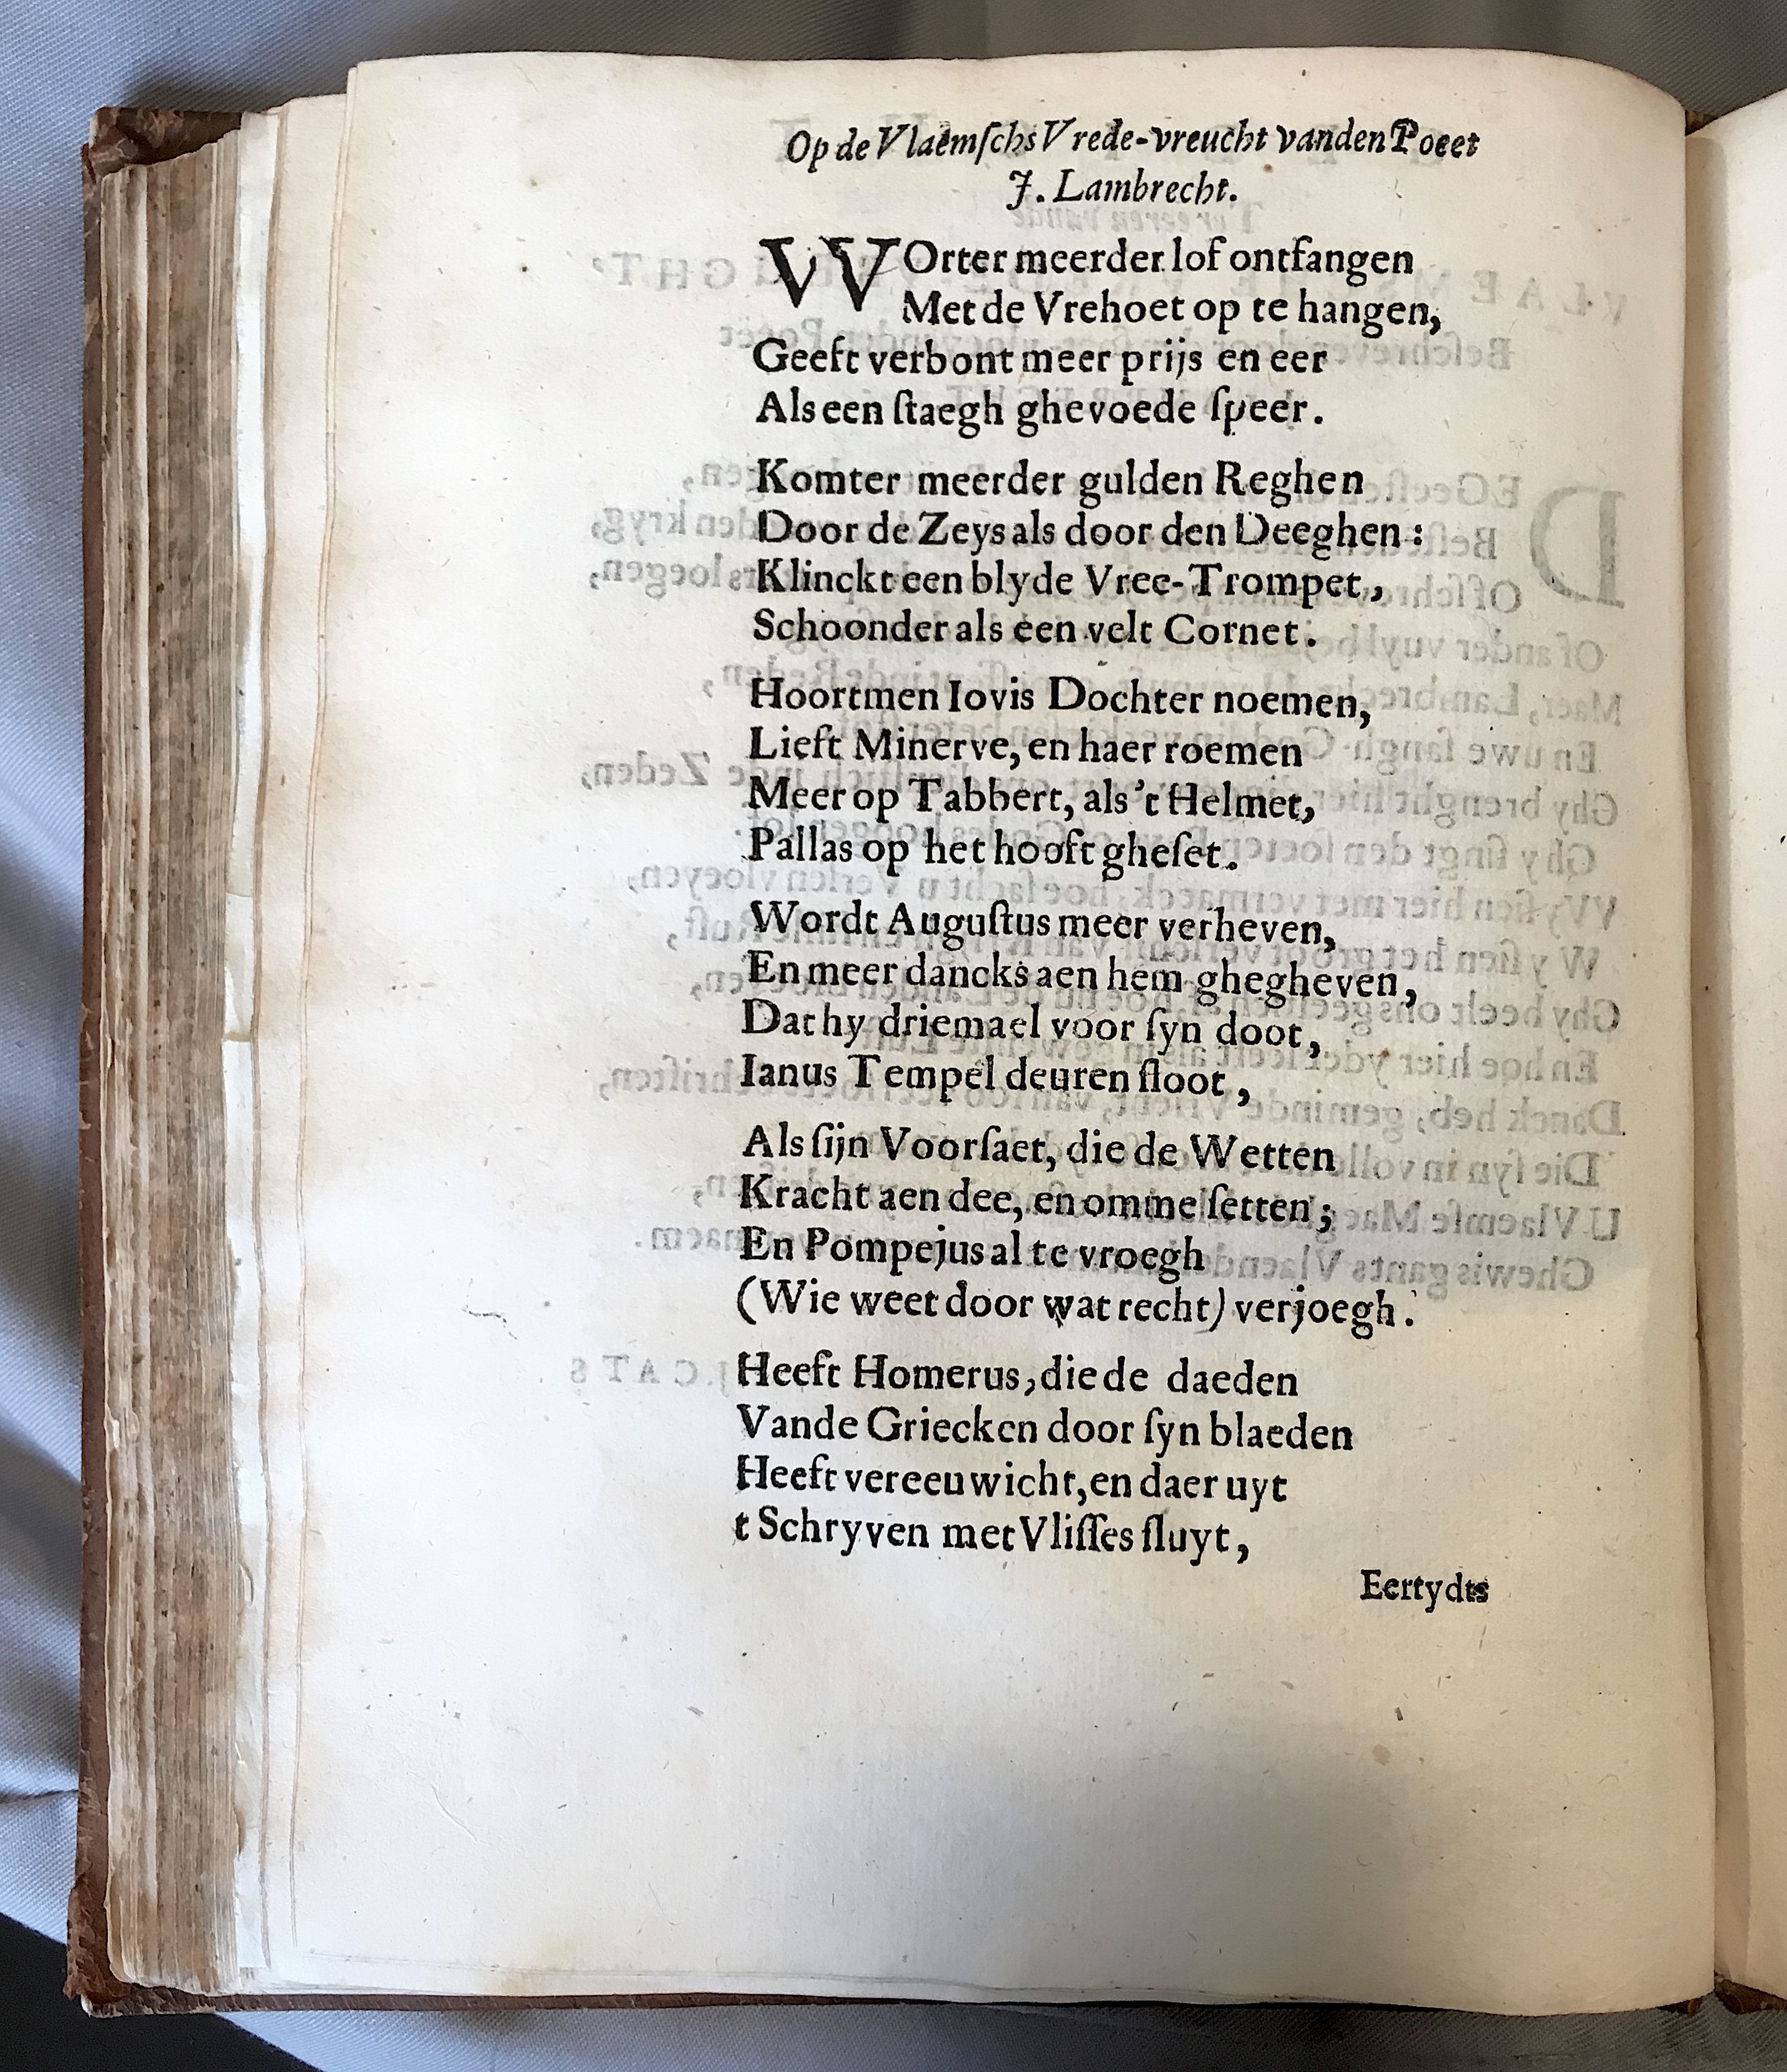 Op de Vlaemſchs Vrede-vreucht vanden Poeet
J. Lambrecht.
WOrter meerder lof ontfangen
Met de Vrehoet op te hangen,
Geeft verbont meer prijs en eer
Als een ſtaegh ghevoede ſpeer.
Komter meerder gulden Reghen
Door de Zeys als door den Deeghen:
Klinckt een blyde Vree-Trompet,
Schoonder als een velt Cornet.
Hoortmen Iovis Dochter noemen,
Lieft Minerve, en haer roemen
Meer op Tabbert, als 't Helmet,
Pallas op het hooft gheſet.
Wordt Auguſtus meer verheven,
En meer dancks aen hem ghegheven,
Dat hy driemael voor ſyn doot,
Ianus Tempel deuren ſloot,
Als ſijn Voorſaet, die de Wetten
Kracht aen dee, en omme ſetten;
En Pompejus al te vroegh
(Wie weet door wat recht) verjoegh.
Heeft Homerus, die de daeden
Vande Griecken door ſyn blaeden
Heeft vereeuwicht, en daer uyt
t Schryven met Vliſſes ſluyt,
Eertydts